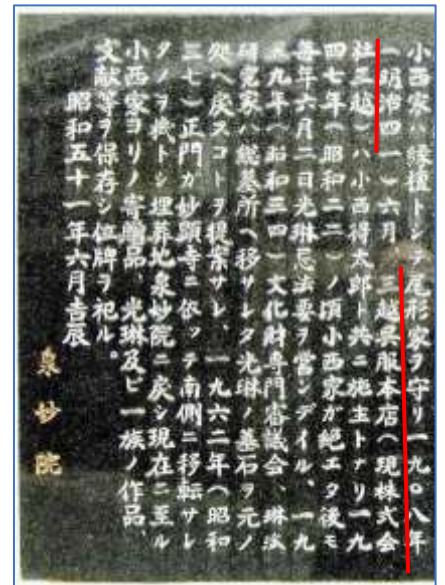 小西家ハ縁檀トシテ尾形家ヲ守リ一九〇八年
(明治四一)六月 三越呉服本店(現株式会
社三越)ハ小西得太郎ト共ニ施主トナリ一九
四七年(昭和二二)ノ頃小西家ガ絶エタ後モ
毎年六月二日光琳忌法要ヲ営ンデイル、一九
五九年(昭和三四)文化財専門審議会、琳派
研究家ハ総墓所ヘ移サレタ光琳ノ墓石ヲ元ノ
処ヘ戻スコトヲ提案サレ、一九六二年(昭和
三七)正門ガ妙顕寺ニ依ッテ南側ニ移転サレ
タノヲ機トシ埋葬地泉妙院ニ戻シ現在ニ至ル
小西家ヨリノ寄贈品、光琳及ビ一族ノ作品、
文献等ヲ保存シ位牌ヲ祀ル。
昭和五十一年六月吉辰
泉妙院